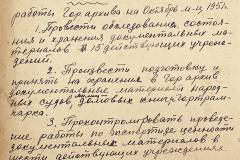 работы Гор.архива на Октябрь м-ц 1951.
1. Провести обследование состоя-
ния и хранения документальных ма-
териалов в 15 действующих учреж-
дений.
2. Произвести подготовку и
принять на хранение в Гор.архив
документальные материалы народ-
ных судов, домовых книг,
3. Проконтролировать проведе-
ние работы по экспертизе ценности
документальных материалов в
действующих учреждениях.